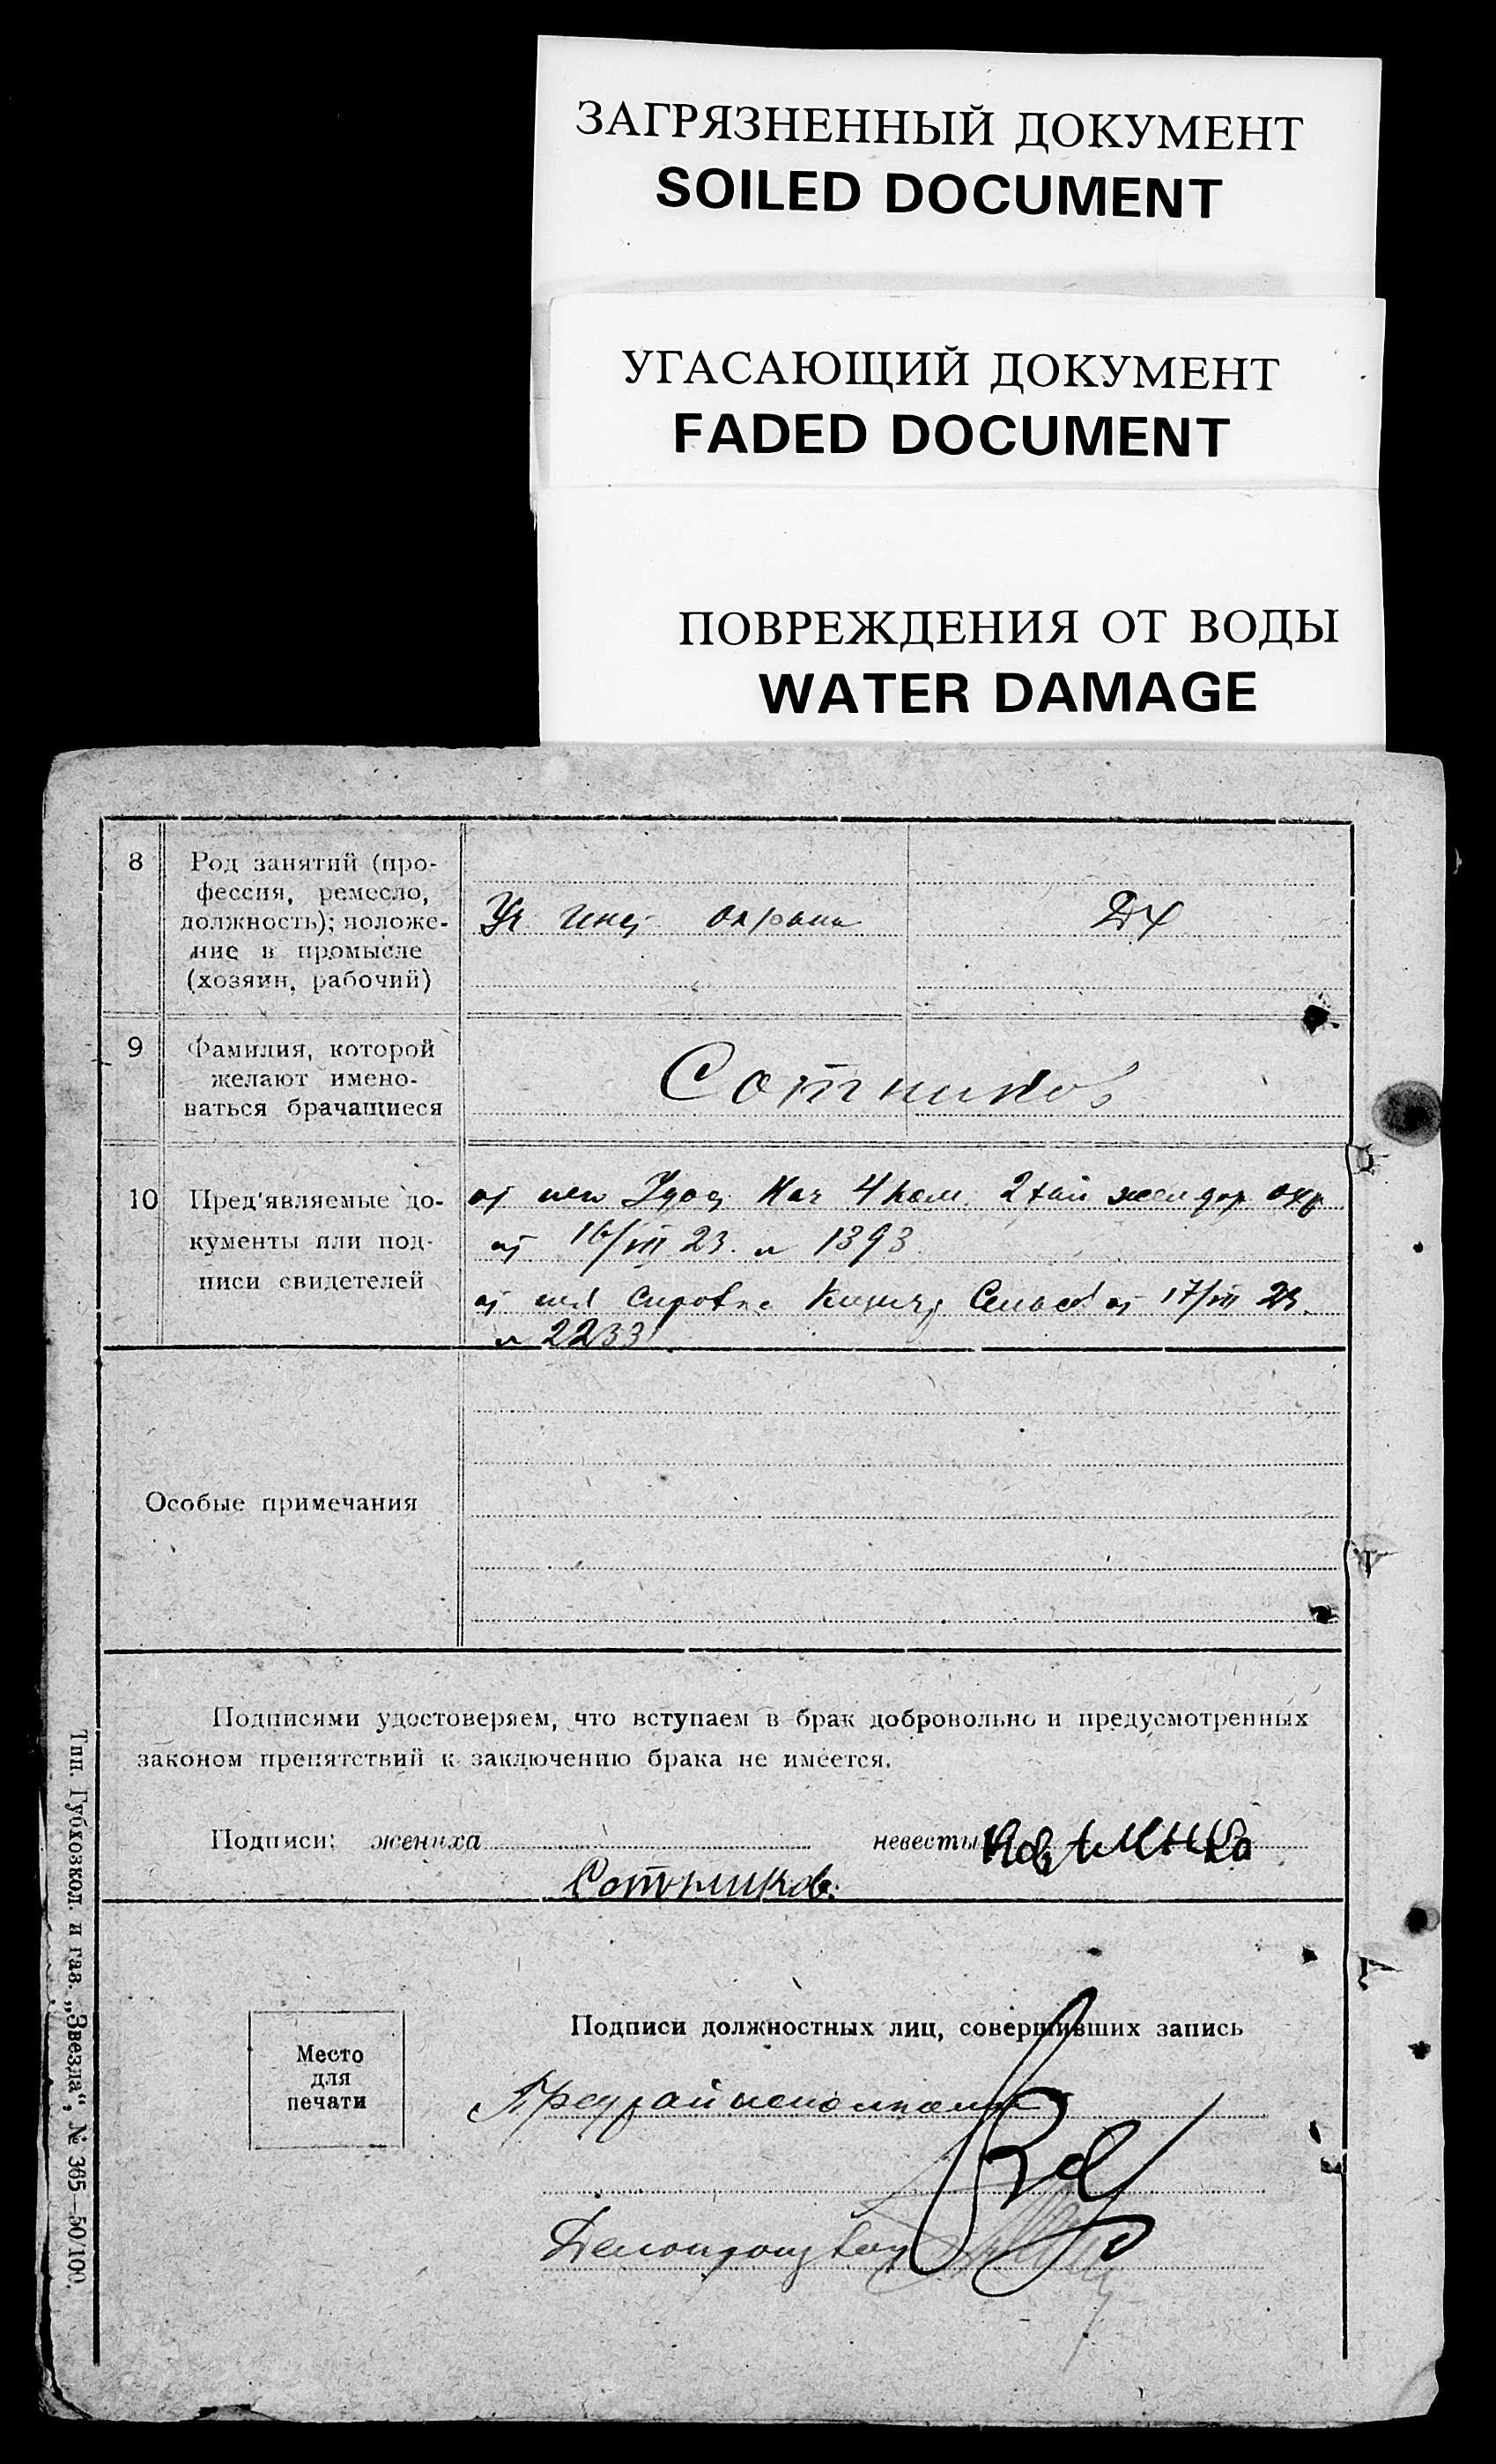 ЗАГРЯЗНЕННЫЙ ДОКУМЕНТ
SOILED DOCUMENT
УГАСАЮЩИЙ ДОКУМЕНТ
FADED DOCUMENT
ПОВРЕЖДЕНИЯ ОТ ВОДЫ
WATER DAMAGE
8 Род занятий (про-
фессия, ремесло,
должность); положе-
ние в промысле
(хозяин, рабочий)
охраны
ДХ
9 Фамилия, которой
желают имено-
ваться брачащиеся
Сотников
10 Пред'являемые до-
кументы или под-
писи свидетелей
от Удос Нач 4 ком. 2 жел дор охр
от 16/VII 23. № 1393
от от 17/VII 23.
№ 2233
Особые примечания
Подписями удостоверяем, что вступаем в брак добровольно и предусмотренных
законом препятствий к заключению брака не имеется.
Подписи: жениха невесты
Сотников.
Место
для
печати
Подписи должностных лиц, совершивших запись
Предрайисполкома
Делопроизвод
Тип. Губхозкол. и газ. „Звезда", № 365—50/100.